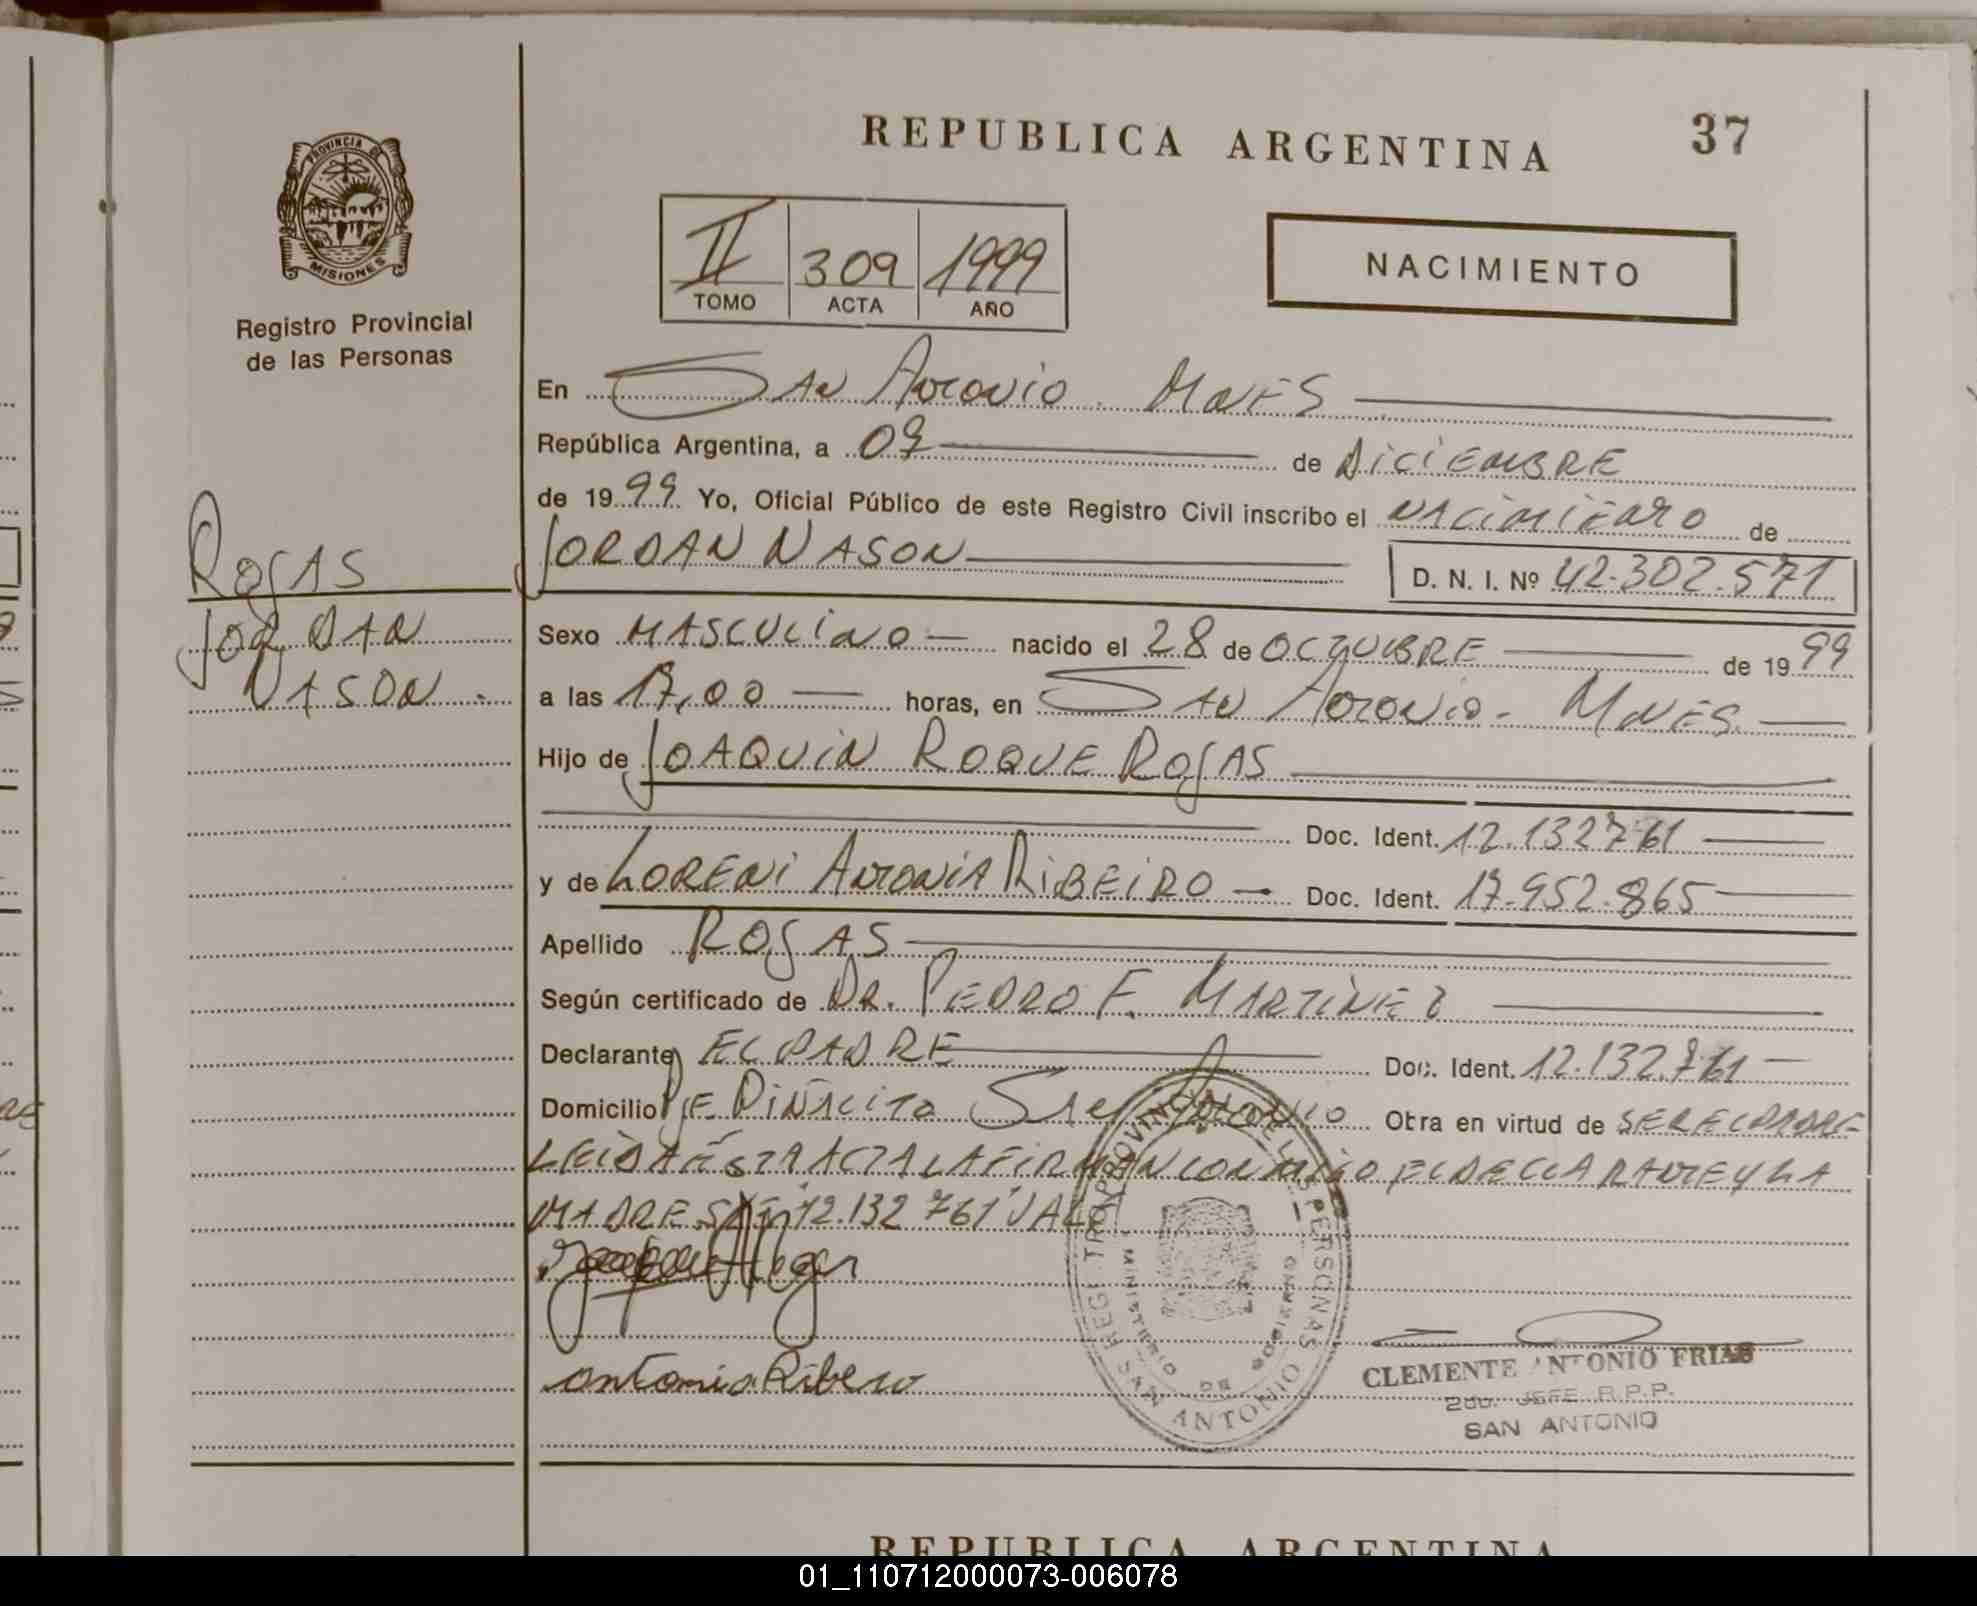 REPUBLICA ARGENTINA
37
PROVINCIA DE
MISIONES
Registro Provincial
de las Personas
II 309 1999
TOMO ACTA AÑO
NACIMIENTO
En San Antonio. Mnes
República Argentina, a 09 de Diciembre
de 1999 Yo, Oficial Público de este Registro Civil inscribo el Nacimiento de
Jordan Nason
D. N. I. Nº 42.302.571
Rojas
Jordan
Nason.
Sexo Masculino nacido el 28 de Octubre de 1999
a las 17,00 horas, en San Antonio - Mnes.
Hijo de Joaquin Roque Rojas
Doc. Ident. 12.132761
y de Loreni Antonia Ribeiro Doc. Ident. 17.952.865
Apellido Rojas
Según certificado de Dr. Pedro F. Martinez
Declarante El Padre Doc. Ident. 12.132.761
Domicilio Pje Piñalito San Antonio Otra en virtud de ser el Padre
Leida ésta acta la firman conmigo el declarante y la
madre. "12.132 761" Vale
Antonia Ribero
REGISTRO PROVINCIAL DE LAS PERSONAS
MINISTERIO DE GOBIERNO
SAN ANTONIO
CLEMENTE ANTONIO FRIAS
2do. JEFE R.P.P.
SAN ANTONIO
REPUBLICA ARGENTINA
01_110712000073-006078